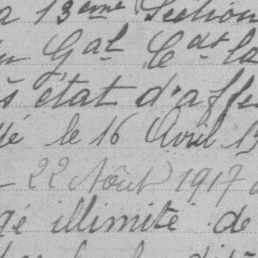 a 13ème Section
Gal Cdt la
s état d'affe
le 16 Avril 19
22 Août 1917
gé illimité de